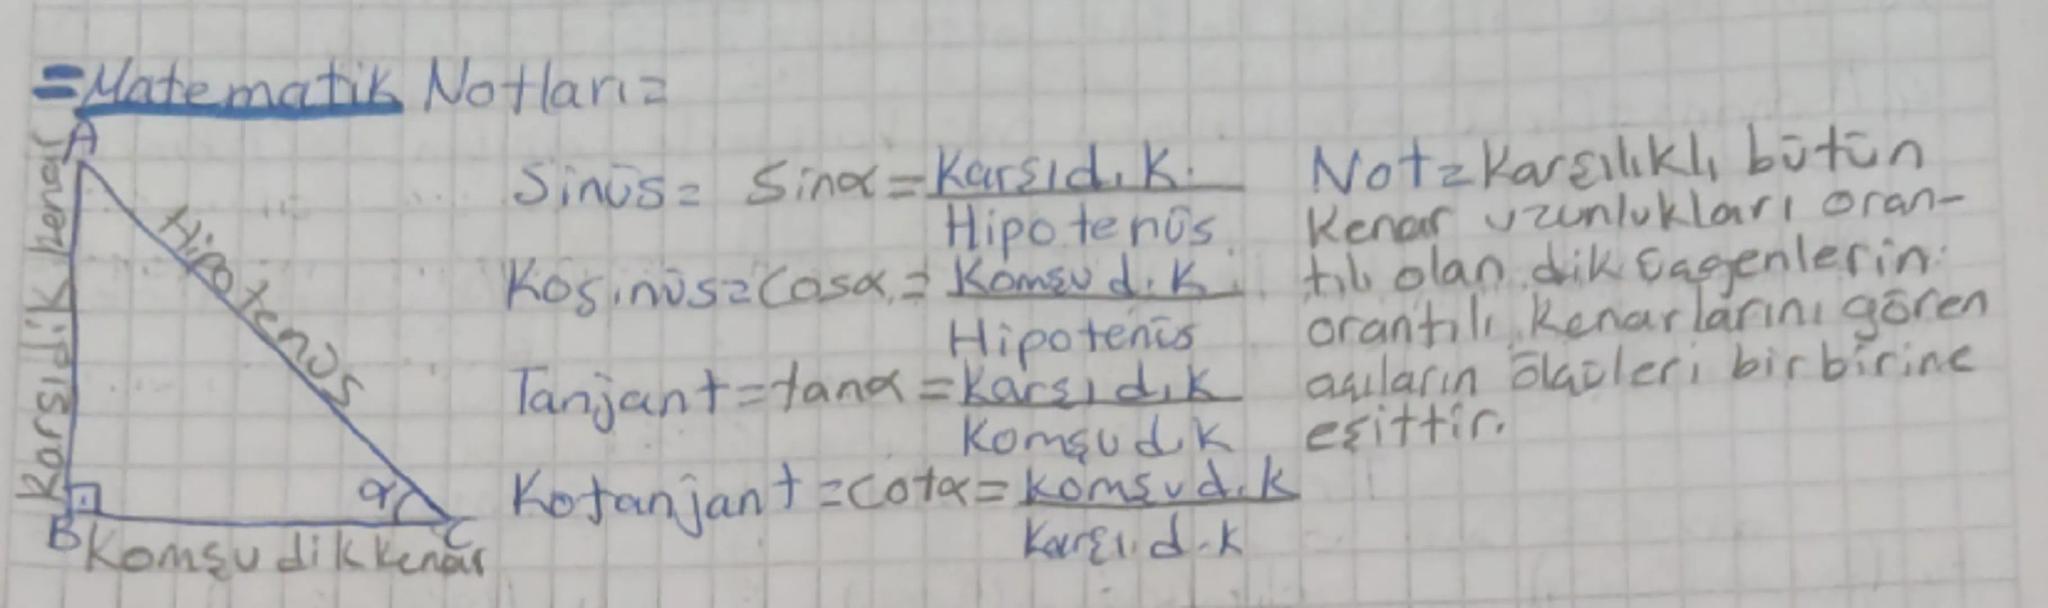 =Matematik Notları=
A
Karşı dik kenar
Hipotenüs
B
α
C
Komşu dik kenar
Sinüs= Sinα = Karşı d.k.
Hipotenüs
Kosinüs=Cosα = Komşu d.k.
Hipotenüs
Tanjant = tanα = Karşı d.k
Komşu d.k
Kotanjant = cotα = Komşu d.k
Karşı d.k
Not= Karşılıklı bütün
kenar uzunlukları oran-
tılı olan dik üçgenlerin
orantılı kenarlarını gören
açıların ölçüleri birbirine
eşittir.